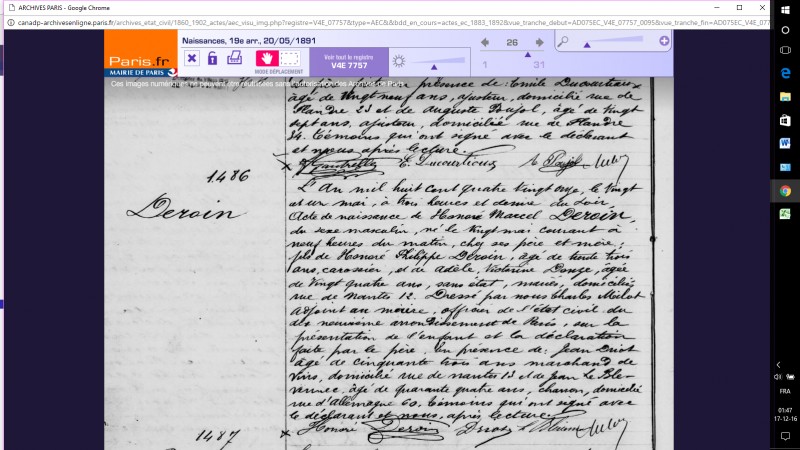 ARCHIVES PARIS - Google Chrome
canadp-archivesenligne.paris.fr/archives_etat_civil/1860_1902_actes/aec_visu_img.php?registre=V4E_07757&type=AEC&&bdd_en_cours=actes_ec_1883_1892&vue_tranche_debut=AD075EC_V4E_07757_0095&vue_tranche_fin=AD075EC_V4E_077
PARIS.FR
MAIRIE DE PARIS
Naissances, 19e arr., 20/05/1891
MODE DÉPLACEMENT
Voir tout le registre
V4E 7757
26
1
31
Ces images numériques ne peuvent être réutilisées sans l'autorisation des Archives de Paris
présence de: Emile Ducourtioux
âgé de vingt neuf ans, ajusteur, domicilié rue de
Flandre 23 et de Auguste Pujol, âgé de vingt
sept ans, ajusteur, domicilié rue de Flandre
34. Témoins qui ont signé avec le déclarant
et nous après lecture.
E. Ducourtioux
1486
Deroin
L'An mil huit cent quatre vingt onze, le vingt
et un mai, à trois heures et demie du soir,
Acte de naissance de Honoré Marcel Deroin,
du sexe masculin, né le vingt mai courant à
neuf heures du matin, chez ses père et mère;
fils de Honoré Philippe Deroin, âgé de trente trois
ans, carossier, et de Adèle, Victorine Donze, âgée
de vingt quatre ans, sans état, mariés, domiciliés
rue de Nantes 12. Dressé par nous Charles
adjoint au maire, officier de l'état civil du
dix neuvième arrondissement de Paris, sur la
présentation de l'enfant et la déclaration
faite par le père, en présence de: Jean
âgé de cinquante trois ans marchand de
vins, domicilié rue de nantes 13 et de Jean Le
âgé de quarante quatre ans, domicilié
rue d'Allemagne 60. Témoins qui ont signé avec
le déclarant et nous, après lecture.
Honoré Deroin
1487
FRA
01:47
17-12-16